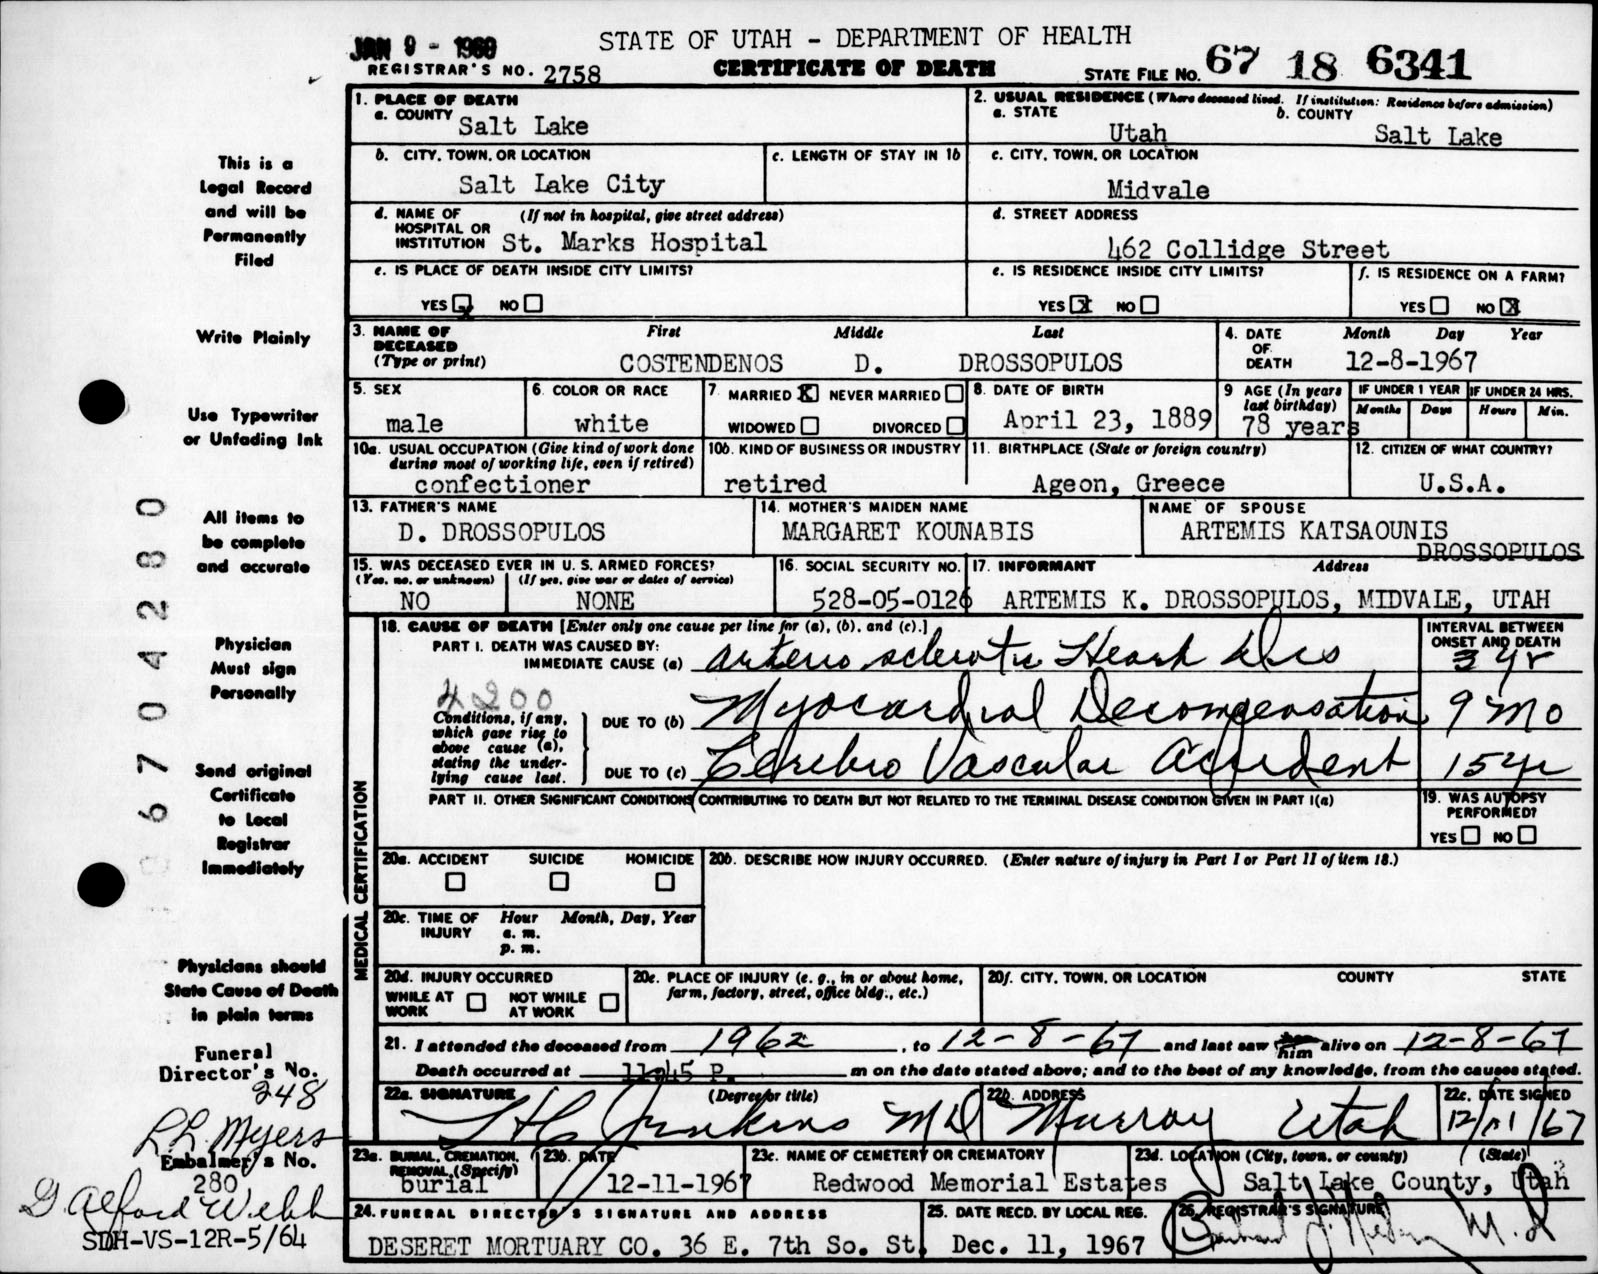 JAN 9 - 1969
STATE OF UTAH - DEPARTMENT OF HEALTH
REGISTRAR'S NO. 2758
CERTIFICATE OF DEATH
STATE FILE NO. 67 18 6341
1. PLACE OF DEATH
a. COUNTY Salt Lake
2. USUAL RESIDENCE (Where deceased lived. If institution: Residence before admission)
a. STATE Utah
b. COUNTY Salt Lake
b. CITY, TOWN, OR LOCATION
Salt Lake City
c. LENGTH OF STAY IN 1b
c. CITY, TOWN, OR LOCATION
Midvale
d. NAME OF HOSPITAL OR INSTITUTION (If not in hospital, give street address)
St. Marks Hospital
d. STREET ADDRESS
462 Collidge Street
e. IS PLACE OF DEATH INSIDE CITY LIMITS?
YES X NO
e. IS RESIDENCE INSIDE CITY LIMITS?
YES X NO
f. IS RESIDENCE ON A FARM?
YES NO X
3. NAME OF DECEASED (Type or print)
First Middle Last
COSTENDENOS D. DROSSOPULOS
4. DATE OF DEATH
Month Day Year
12-8-1967
5. SEX
male
6. COLOR OR RACE
white
7 MARRIED X NEVER MARRIED
WIDOWED DIVORCED
8. DATE OF BIRTH
April 23, 1889
9 AGE (In years last birthday)
78 years
IF UNDER 1 YEAR
Months Days
IF UNDER 24 HRS.
Hours Min.
10a. USUAL OCCUPATION (Give kind of work done during most of working life, even if retired)
confectioner
10b. KIND OF BUSINESS OR INDUSTRY
retired
11. BIRTHPLACE (State or foreign country)
Ageon, Greece
12. CITIZEN OF WHAT COUNTRY?
U.S.A.
13. FATHER'S NAME
D. DROSSOPULOS
14. MOTHER'S MAIDEN NAME
MARGARET KOUNABIS
NAME OF SPOUSE
ARTEMIS KATSAOUNIS
DROSSOPULOS
15. WAS DECEASED EVER IN U. S. ARMED FORCES?
(Yes, no, or unknown) (If yes, give war or dates of service)
NO NONE
16. SOCIAL SECURITY NO.
528-05-0126
17. INFORMANT Address
ARTEMIS K. DROSSOPULOS, MIDVALE, UTAH
18. CAUSE OF DEATH [Enter only one cause per line for (a), (b), and (c).]
INTERVAL BETWEEN ONSET AND DEATH
PART I. DEATH WAS CAUSED BY:
IMMEDIATE CAUSE (a) Arterio sclerotic Heart Dis 3 yr
4200
Conditions, if any, which gave rise to above cause (a), stating the underlying cause last.
DUE TO (b) Myocardial Decompensation 9 Mo
DUE TO (c) Cerebro Vascular Accident 15 yr
PART II. OTHER SIGNIFICANT CONDITIONS CONTRIBUTING TO DEATH BUT NOT RELATED TO THE TERMINAL DISEASE CONDITION GIVEN IN PART I(a)
19. WAS AUTOPSY PERFORMED?
YES NO
MEDICAL CERTIFICATION
20a. ACCIDENT SUICIDE HOMICIDE
20b. DESCRIBE HOW INJURY OCCURRED. (Enter nature of injury in Part I or Part II of item 18.)
20c. TIME OF INJURY
Hour Month, Day, Year
a. m.
p. m.
20d. INJURY OCCURRED
WHILE AT WORK NOT WHILE AT WORK
20e. PLACE OF INJURY (e. g., in or about home, farm, factory, street, office bldg., etc.)
20f. CITY, TOWN, OR LOCATION COUNTY STATE
21. I attended the deceased from 1962, to 12-8-67 and last saw him alive on 12-8-67
Death occurred at 11:45 P. m on the date stated above; and to the best of my knowledge, from the causes stated.
22a. SIGNATURE (Degree or title)
Jenkins MD
22b. ADDRESS
Murray Utah
22c. DATE SIGNED
12/11/67
23a. BURIAL, CREMATION, REMOVAL (Specify)
burial
23b. DATE
12-11-1967
23c. NAME OF CEMETERY OR CREMATORY
Redwood Memorial Estates
23d. LOCATION (City, town, or county) (State)
Salt Lake County, Utah
24. FUNERAL DIRECTOR'S SIGNATURE AND ADDRESS
DESERET MORTUARY CO. 36 E. 7th So. St.
25. DATE RECD. BY LOCAL REG.
Dec. 11, 1967
26. REGISTRAR'S SIGNATURE
M.D
This is a
Legal Record
and will be
Permanently
Filed
Write Plainly
Use Typewriter
or Unfading Ink
All items to
be complete
and accurate
Physician
Must sign
Personally
Send original
Certificate
to Local
Registrar
Immediately
Physicians should
State Cause of Death
in plain terms
Funeral
Director's No.
248
L L Myers
Embalmer's No.
280
G Alford Webb
SDH-VS-12R-5/64
6704280